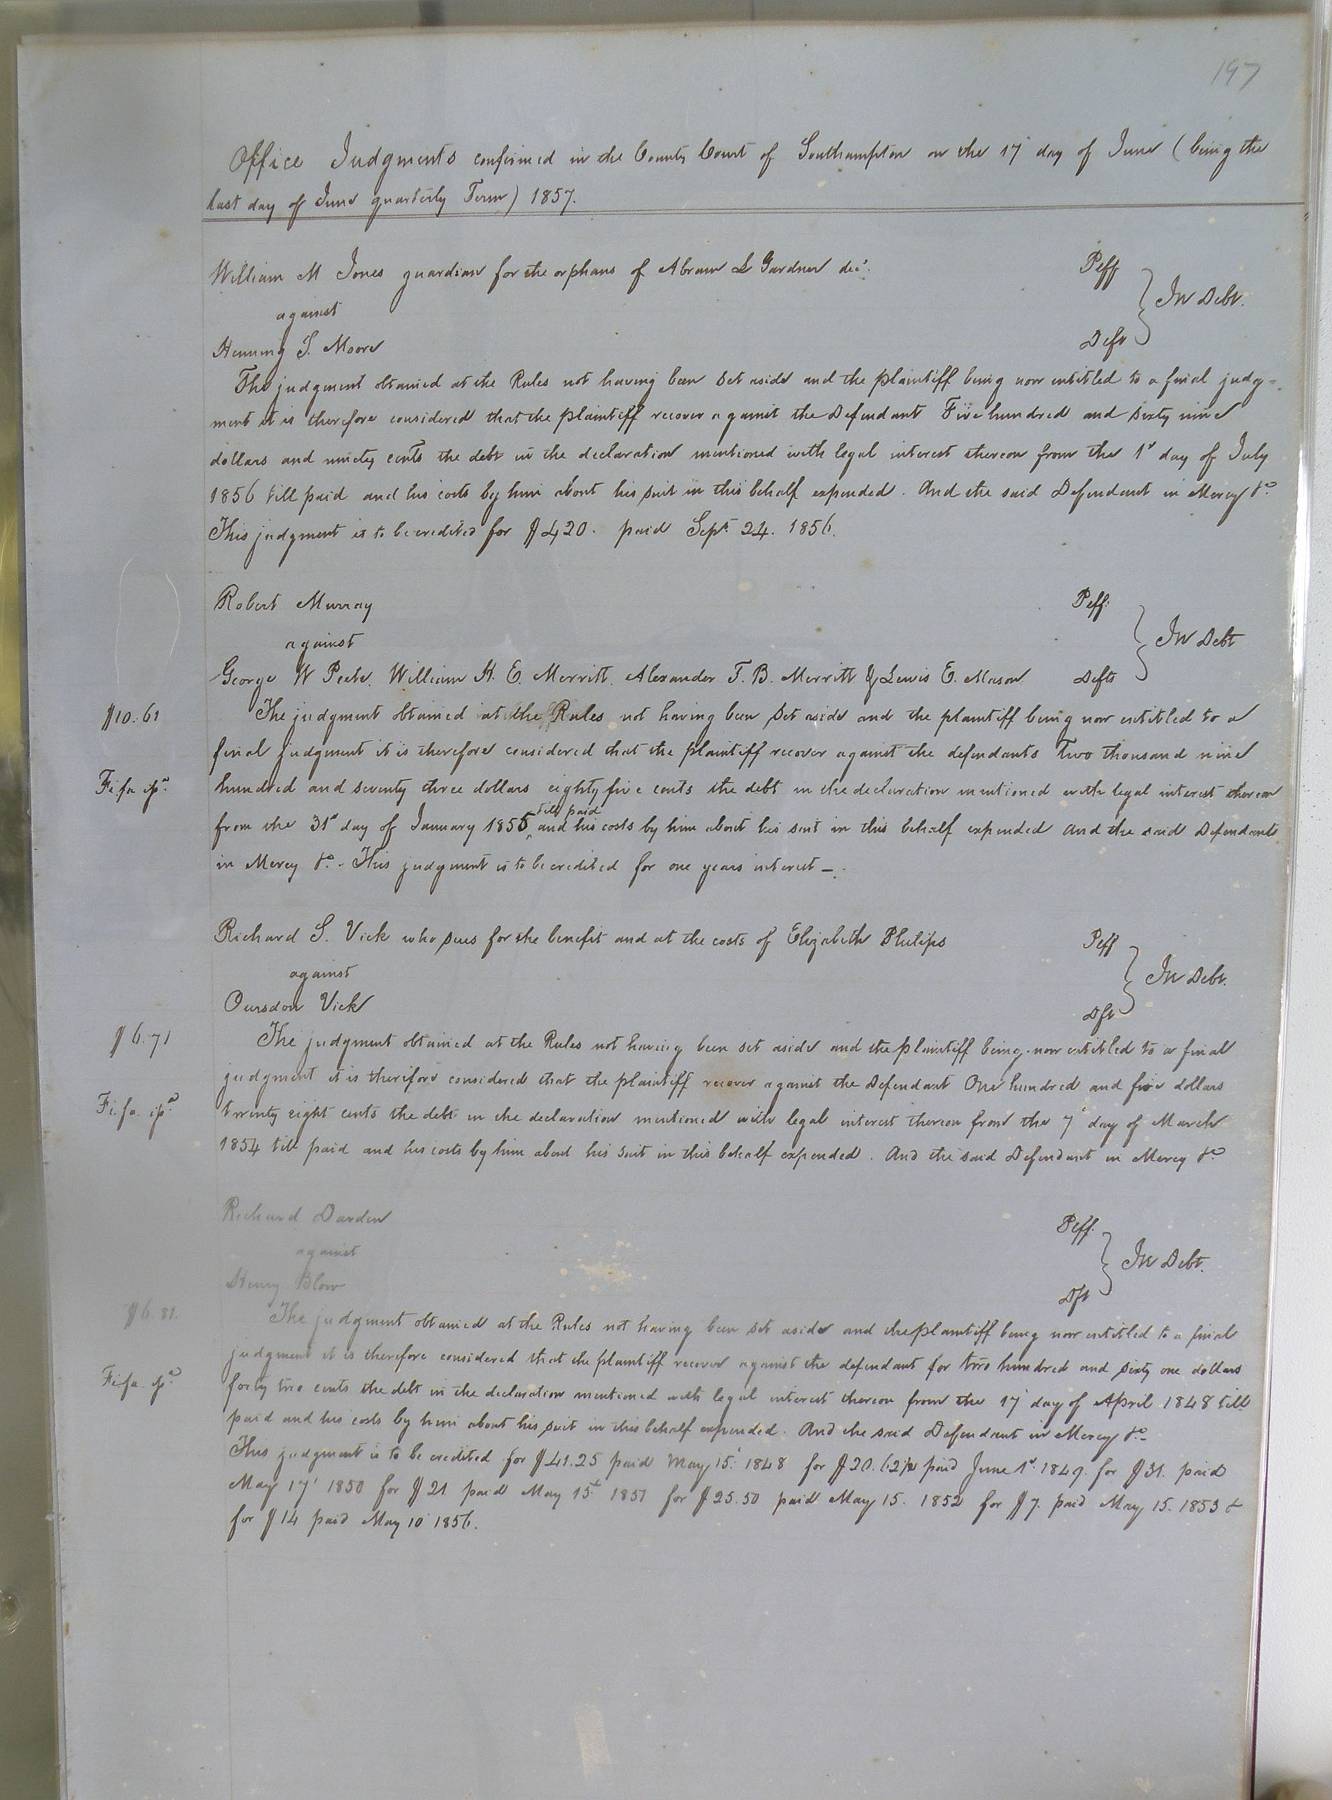 197
Office Judgments confirmed in the County Court of Southampton on the 17' day of June (being the
last day of June quarterly Term) 1857.
William M Jones guardian for the orphans of Abram L Gardner dec'. Plff
against In Debt.
Henning S. Moore Deft
The judgment obtained at the Rules not having been set aside and the plaintiff being now entitled to a final judg-
ment it is therefore considered that the plaintiff recover against the Defendant Five hundred and sixty nine
dollars and ninety cents the debt in the declaration mentioned with legal interest thereon from the 1st day of July
1856 till paid and his costs by him about his suit in this behalf expended. And the said Defendant in Mercy &c
This judgment is to be credited for $420. paid Sept 24. 1856.
Robert Murray Plff.
against In Debt
George W Peete, William H. E. Merritt, Alexander T. B. Merritt & Lewis E. Mason Defts
$10.61
The judgment obtained at the Rules not having been set aside and the plaintiff being now entitled to a
final judgment it is therefore considered that the plaintiff recover against the defendants Two thousand nine
Fi. fa. ipd.
hundred and seventy three dollars eighty five cents the debt in the declaration mentioned with legal interest thereon
from the 31st day of January 1855 till paid and his costs by him about his suit in this behalf expended and the said Defendants
in Mercy &c - This judgment is to be credited for one years interest -.
Richard S. Vick who sues for the benefit and at the costs of Elizabeth Philips Plff
against In Debt.
Oursdon Vick Dft
$6.71
The judgment obtained at the Rules not having been set aside and the plaintiff being now entitled to a final
judgment it is therefore considered that the plaintiff recover against the Defendant One hundred and five dollars
Fi. fa. ipd.
twenty eight cents the debt in the declaration mentioned with legal interest thereon from the 7' day of March
1854 till paid and his costs by him about his suit in this behalf expended. And the said Defendant in Mercy &c
Richard Darden Plff.
against In Debt.
Henry Blow Dft
$6.81.
The judgment obtained at the Rules not having been set aside and the plaintiff being now entitled to a final
judgment it is therefore considered that the plaintiff recover against the defendant for two hundred and sixty one dollars
Fi. fa. ipd.
forty two cents the debt in the declaration mentioned with legal interest thereon from the 17' day of April 1848 till
paid and his costs by him about his suit in this behalf expended. And the said Defendant in Mercy &c-
This judgment is to be credited for $41.25 paid May 15' 1848 for $20. paid June 1st 1849. for $31. paid
May 17' 1850 for $21 paid May 15t 1851 for $25.50 paid May 15. 1852 for $7. paid May 15. 1853 &
for $14 paid May 10 1856.